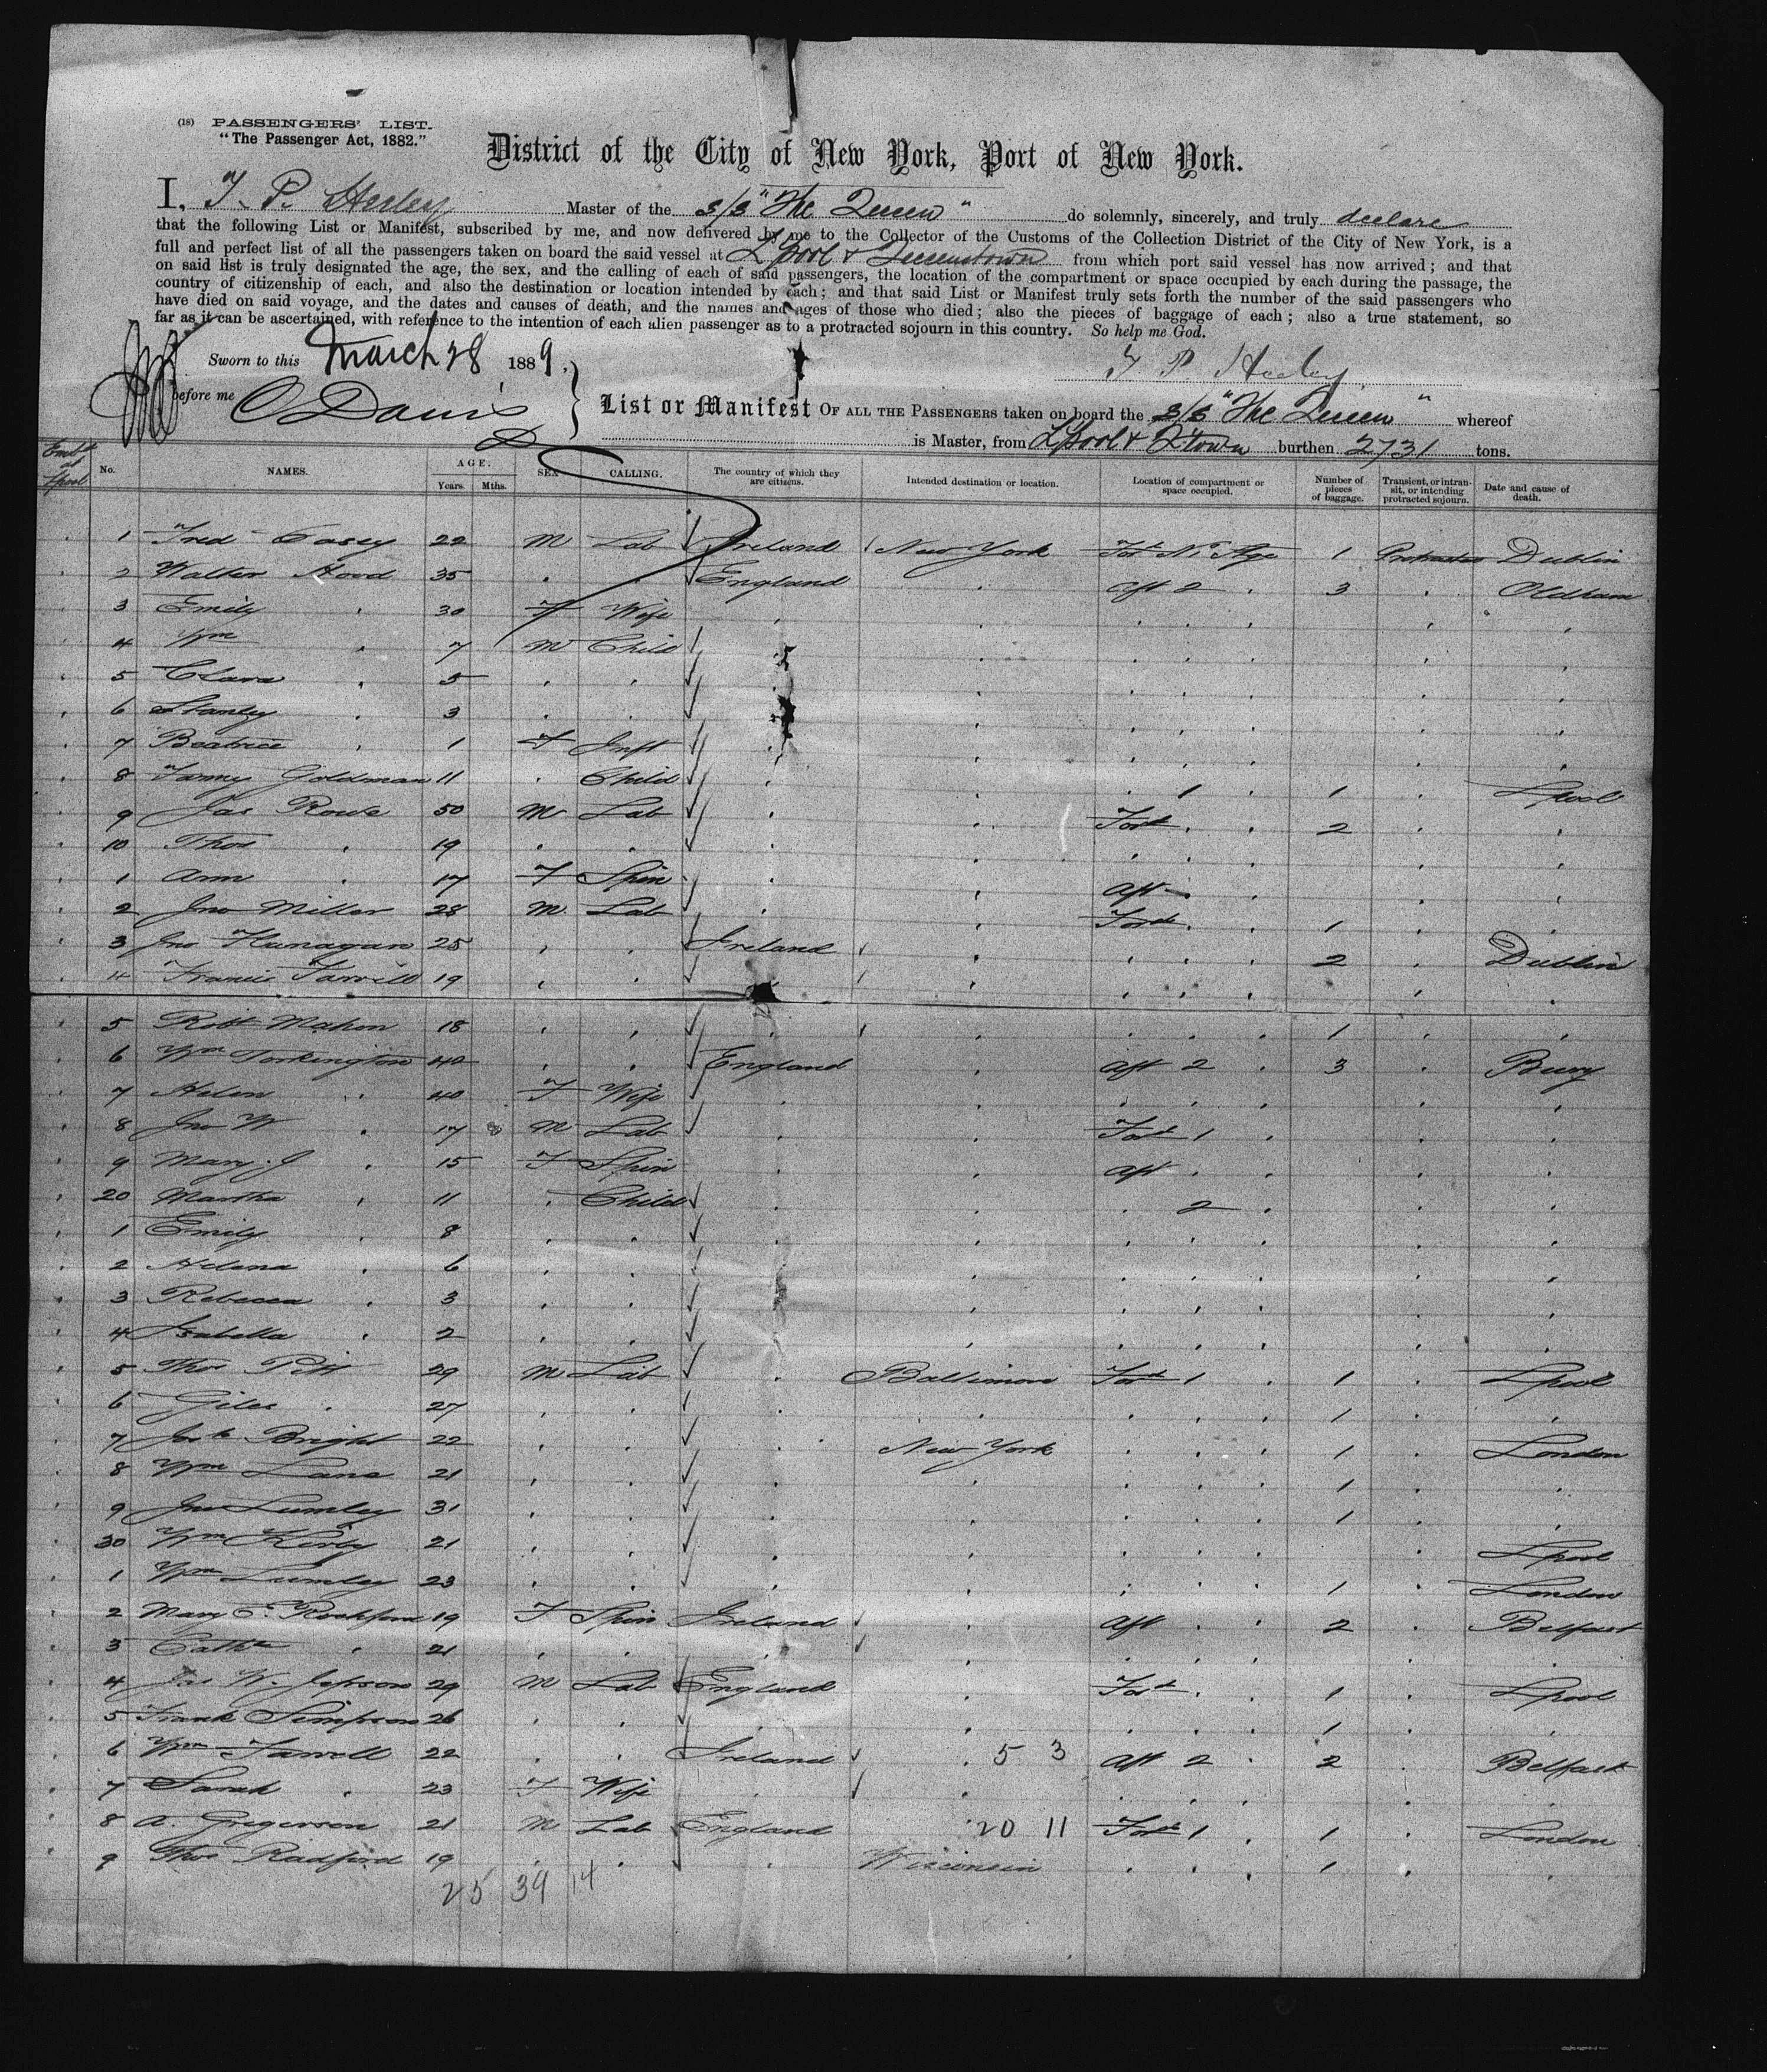 (18) PASSENGERS' LIST.
"The Passenger Act, 1882."
District of the City of New York, Port of New York.
I, T. P. Heeley Master of the s/s "The Queen" do solemnly, sincerely, and truly declare
that the following List or Manifest, subscribed by me, and now delivered by me to the Collector of the Customs of the Collection District of the City of New York, is a
full and perfect list of all the passengers taken on board the said vessel at L'pool & Queenstown from which port said vessel has now arrived; and that
on said list is truly designated the age, the sex, and the calling of each of said passengers, the location of the compartment or space occupied by each during the passage, the
country of citizenship of each, and also the destination or location intended by each; and that said List or Manifest truly sets forth the number of the said passengers who
have died on said voyage, and the dates and causes of death, and the names and ages of those who died; also the pieces of baggage of each; also a true statement, so
far as it can be ascertained, with reference to the intention of each alien passenger as to a protracted sojourn in this country. So help me God.
Sworn to this March 28 1889,
T P. Heeley
before me O Davis
List or Manifest OF ALL THE PASSENGERS taken on board the s/s "The Queen" whereof
is Master, from L'pool & Q'town burthen 2731 tons.
Embd at Lpool No. NAMES. AGE. Years. Mths. SEX CALLING. The country of which they are citizens. Intended destination or location. Location of compartment or space occupied. Number of pieces of baggage. Transient, or in transit, or intending protracted sojourn. Date and cause of death.
1 Fred Casey 22 M Lab Ireland New York Ford No 1 Stge 1 Protracted Dublin
2 Walter Hood 35 " " England " Aft 2 " 3 " Oldham
3 Emily " 30 F Wife " " " " " " "
4 Wm " 7 M Child " " " " " " "
5 Clara " 5 " " " " " " " " "
6 Stanley " 3 " " " " " " " " "
7 Beatrice " 1 F Inft " " " " " " "
8 Fanny Goldman 11 " Child " " " 1 " 1 " Lpool
9 Jas Rowe 50 M Lab " " Ford " " 2 " "
10 Thos " 19 " " " " " " " " "
1 Ann " 17 F Spin " " Aft " " "
2 Jno Miller 28 M Lab " " Ford " " 1 " "
3 Jno Flanagan 25 " " Ireland " " " " 2 " Dublin
4 Francis Farrell 19 " " " " " " " " "
5 Robt Mahon 18 " " " " " " " 1 " "
6 Wm Torkington 42 " " England " Aft 2 " 3 " Bury
7 Helen " 40 F Wife " " " " " " "
8 Jno W " 17 M Lab " " Ford 1 " " "
9 Mary J " 15 F Spin " " Aft " " " "
20 Martha " 11 " Child " " " 2 " " "
1 Emily " 8 " " " " " " " " "
2 Helena " 6 " " " " " " " " "
3 Rebecca " 3 " " " " " " " " "
4 Isabella " 2 " " " " " " " " "
5 Thos Pitt 29 M Lab " Baltimore Ford 1 " 1 " Lpool
6 Giles " 27 " " " " " " " 1 " "
7 Josh Bright 22 " " " New York " " " 1 " London
8 Wm Lane 21 " " " " " " " 1 " "
9 Jno Lumley 31 " " " " " " " 1 " "
30 Wm Kirby 21 " " " " " " " " Lpool
1 Wm Lumley 23 " " " " " " " 1 " London
2 Mary E. Rochford 19 F Spin Ireland " Aft " " 2 " Belfast
3 Cathe " 21 " " " " " " " " "
4 Jas W. Jepson 29 M Lab England " Ford " " 1 " Lpool
5 Frank Simpson 26 " " " " " " " 1 " "
6 Wm Farrell 22 " " Ireland " 5 3 Aft 2 " 2 " Belfast
7 Sarah " 23 F Wife " " " " " " "
8 A. Gregerson 21 M Lab England 20 11 Ford 1 " 1 " London
9 Thos Radford 19 " " " Wisconsin " " " 1 " "
25 39 14